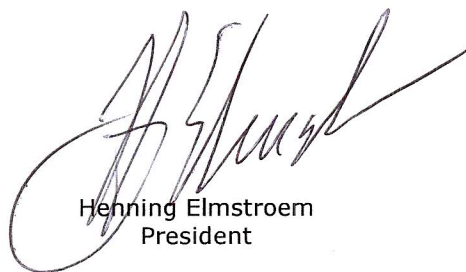 Henning Elmstroem
President